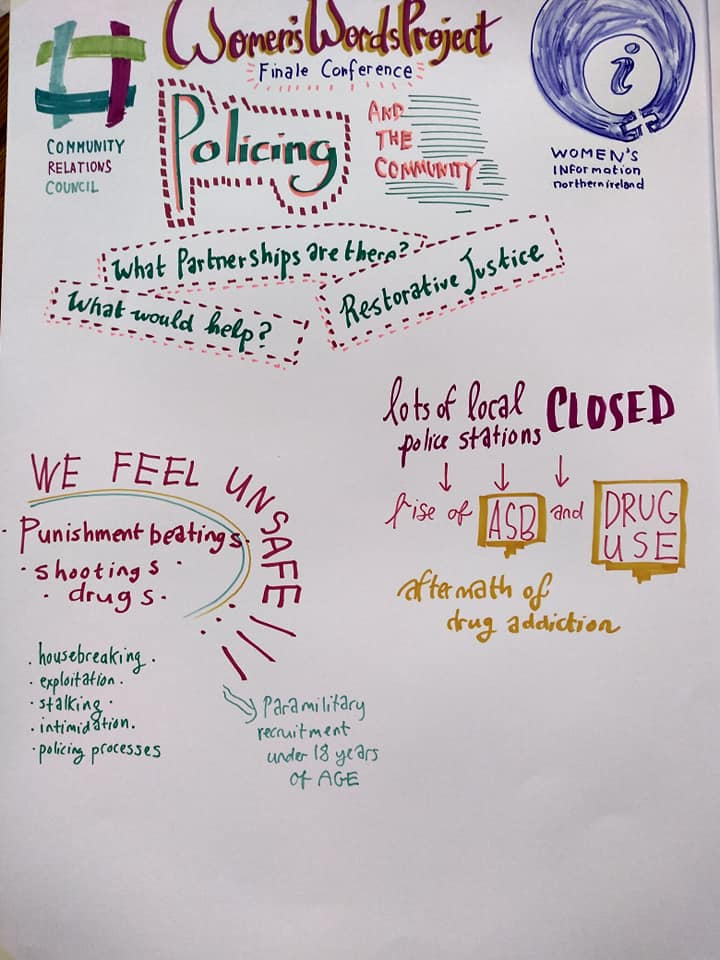 Women's Words Project
Finale Conference
COMMUNITY
RELATIONS
COUNCIL
Policing
AND
THE
COMMUNITY
i
WOMEN'S
INFORMATION
northern ireland
What Partnerships are there?
What would help?
Restorative Justice
lots of local CLOSED
police stations
rise of ASB and DRUG
USE
aftermath of
drug addiction
WE FEEL UNSAFE
· Punishment beatings ·
· shootings ·
· drugs ·
· housebreaking ·
· exploitation ·
· stalking ·
· intimidation ·
· policing processes
Paramilitary
recruitment
under 18 years
of AGE